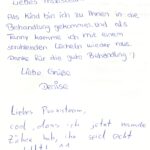 Als Kind bin ich zu Ihnen in die
Behandlung gekommen und als
komme ich mit einem
strahlenden Lächeln wieder raus.
Danke für die gute Behandlung!
Liebe Grüße,
Denise
Liebes Praxisteam,
cool, dass ich jetzt
Zähne hab, ihr seid echt